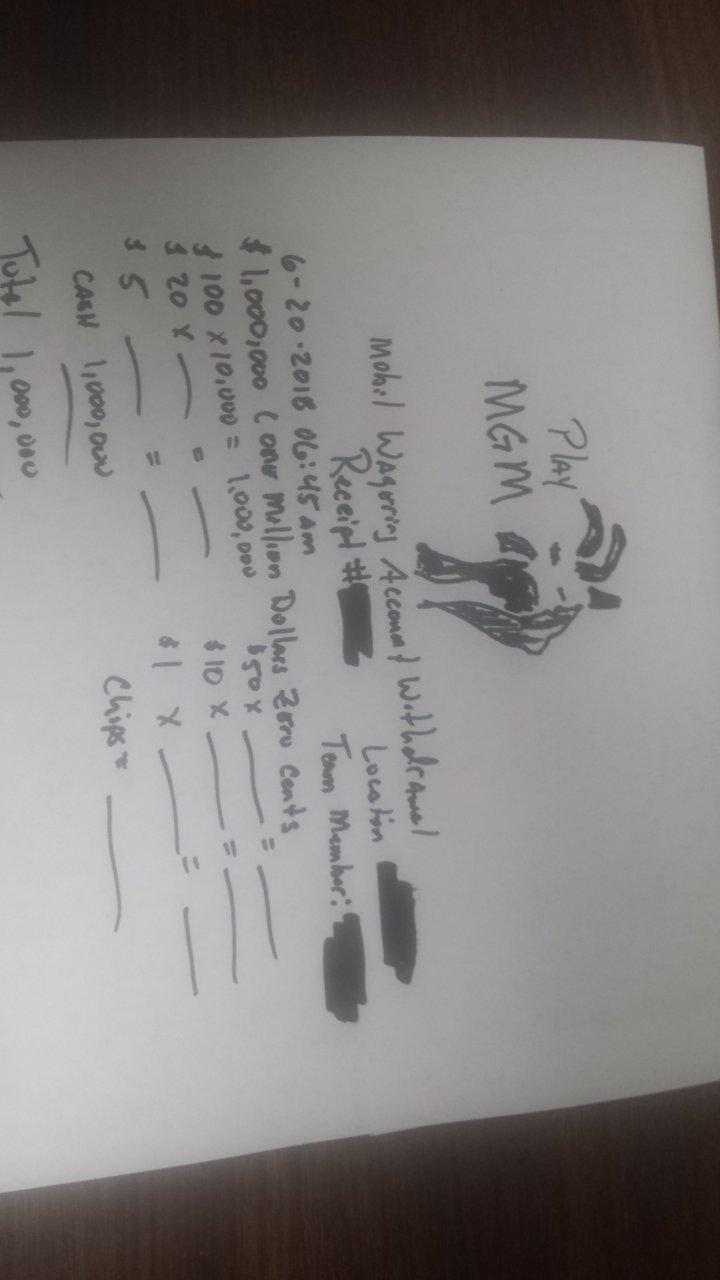 Play
MGM
Mobil Wagering Account Withdrawal
Receipt #
Location
Team Member:
6-20-2018 06:45 Am
$ 1,000,000 (one Million Dollars Zero Cents
$ 100 x 10,000 = 1,000,000 $50 x ___ = ___
$ 20 x ___ = ___ $10 x ___ = ___
$ 5 ___ = ___ $1 x ___ = ___
CASH 1,000,000 Chips = ___
Total 1,000,000